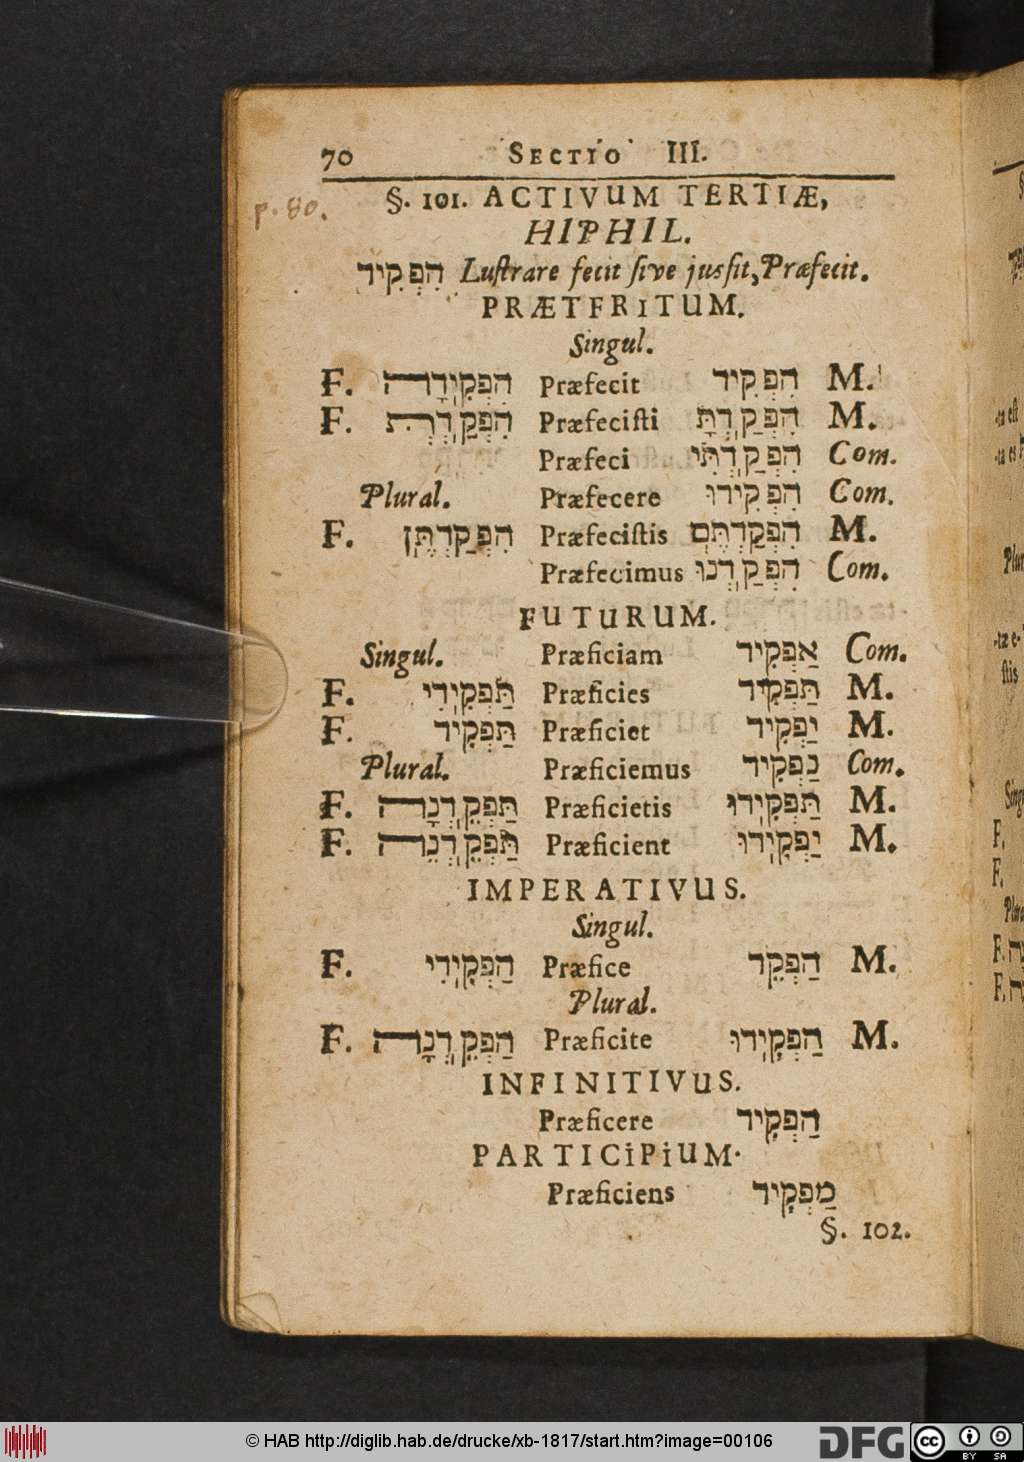 70 SECTIO III.
p. 80.
§. 101. ACTIVUM TERTIÆ,
HIPHIL.
הִפְקִיד Luſtrare fecit ſive jusſit, Præfecit.
PRÆTFRITUM.
Singul.
F. הִפְקִיְדָה Præfecit הִפְקִיד M.
F. הִפְקַדְתְּ Præfeciſti הִפְקַדְתָּ M.
Præfeci הִפְקַדְתִּי Com.
Plural. Præfecere הִפְקִידוּ Com.
F. הִפְקַדְתֶּן Præfeciſtis הִפְקַדְתֶּם M.
Præfecimus הִפְקַדְנוּ Com.
FUTURUM.
Singul. Præficiam אַפְקִיד Com.
F. תַּפְקִיְדִי Præficies תַּפְקִיד M.
F. תַּפְקִיד Præficiet יַפְקִיד M.
Plural. Præficiemus נַפְקִיד Com.
F. תַּפְקֵדְנָה Præficietis תַּפְקִיְדוּ M.
F. תַּפְקֵדְנָה Præficient יַפְקִיְדוּ M.
IMPERATIVUS.
Singul.
F. הַפְקִיְדִי Præfice הַפְקֵד M.
Plural.
F. הַפְקֵדְנָה Præficite הַפְקִיְדוּ M.
INFINITIVUS.
Præficere הַפְקִיד
PARTICIPIUM.
Præficiens מַפְקִיד
§. 102.
© HAB http://diglib.hab.de/drucke/xb-1817/start.htm?image=00106
DFG cc BY SA